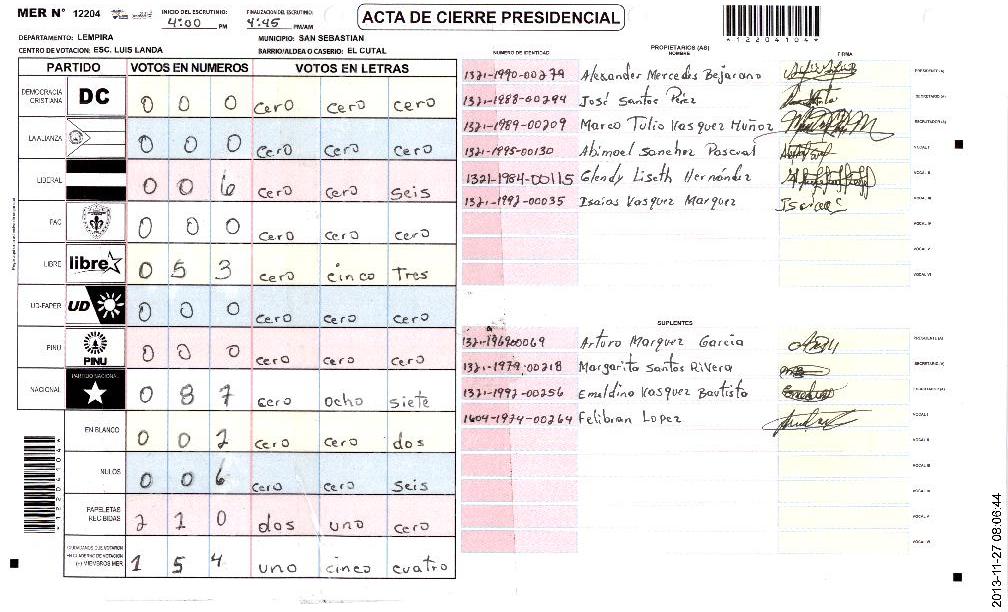 MER N° 12204
INICIO DEL ESCRUTINIO: 4:00 PM
FINALIZACION DEL ESCRUTINIO: 4:45 PM/AM
ACTA DE CIERRE PRESIDENCIAL
*12204104*
DEPARTAMENTO: LEMPIRA
MUNICIPIO: SAN SEBASTIAN
CENTRO DE VOTACION: ESC. LUIS LANDA
BARRIO/ALDEA O CASERIO: EL CUTAL
PARTIDO VOTOS EN NUMEROS VOTOS EN LETRAS
DEMOCRACIA CRISTIANA DC 0 0 0 cero cero cero
LA ALIANZA 0 0 0 cero cero cero
LIBERAL 0 0 6 cero cero seis
PAC 0 0 0 cero cero cero
LIBRE libre 0 5 3 cero cinco Tres
UD-FAPER UD 0 0 0 cero cero cero
PINU PINU 0 0 0 cero cero cero
NACIONAL PARTIDO NACIONAL 0 8 7 cero ocho siete
EN BLANCO 0 0 2 cero cero dos
NULOS 0 0 6 cero cero seis
PAPELETAS RECIBIDAS 2 1 0 dos uno cero
CIUDADANOS QUE VOTARON EN CUADERNO DE VOTACION (+) MIEMBROS MER 1 5 4 uno cinco cuatro
PROPIETARIOS (AS)
NUMERO DE IDENTIDAD NOMBRE FIRMA
1321-1990-00279 Alexander Mercedes Bejarano PRESIDENTE(A)
1321-1988-00294 José Santos Pérez SECRETARIO(A)
1321-1989-00209 Marco Tulio Vasquez Muñoz ESCRUTADOR(A)
1321-1995-00130 Abimael Sanchez Pascual VOCAL I
1321-1984-00115 Glendy Liseth Hernández VOCAL II
1321-1992-00035 Isaias Vasquez Marquez Isaias VOCAL III
VOCAL IV
VOCAL V
VOCAL VI
SUPLENTES
1321-1969-00069 Arturo Marquez García PRESIDENTE(A)
1321-1979-00218 Margarita Santos Rivera SECRETARIO(A)
1321-1992-00256 Emeldino Vasquez Bautista ESCRUTADOR(A)
1604-1974-00264 Felibran Lopez VOCAL I
VOCAL II
VOCAL III
VOCAL IV
VOCAL V
VOCAL VI
2013-11-27 08:06:44